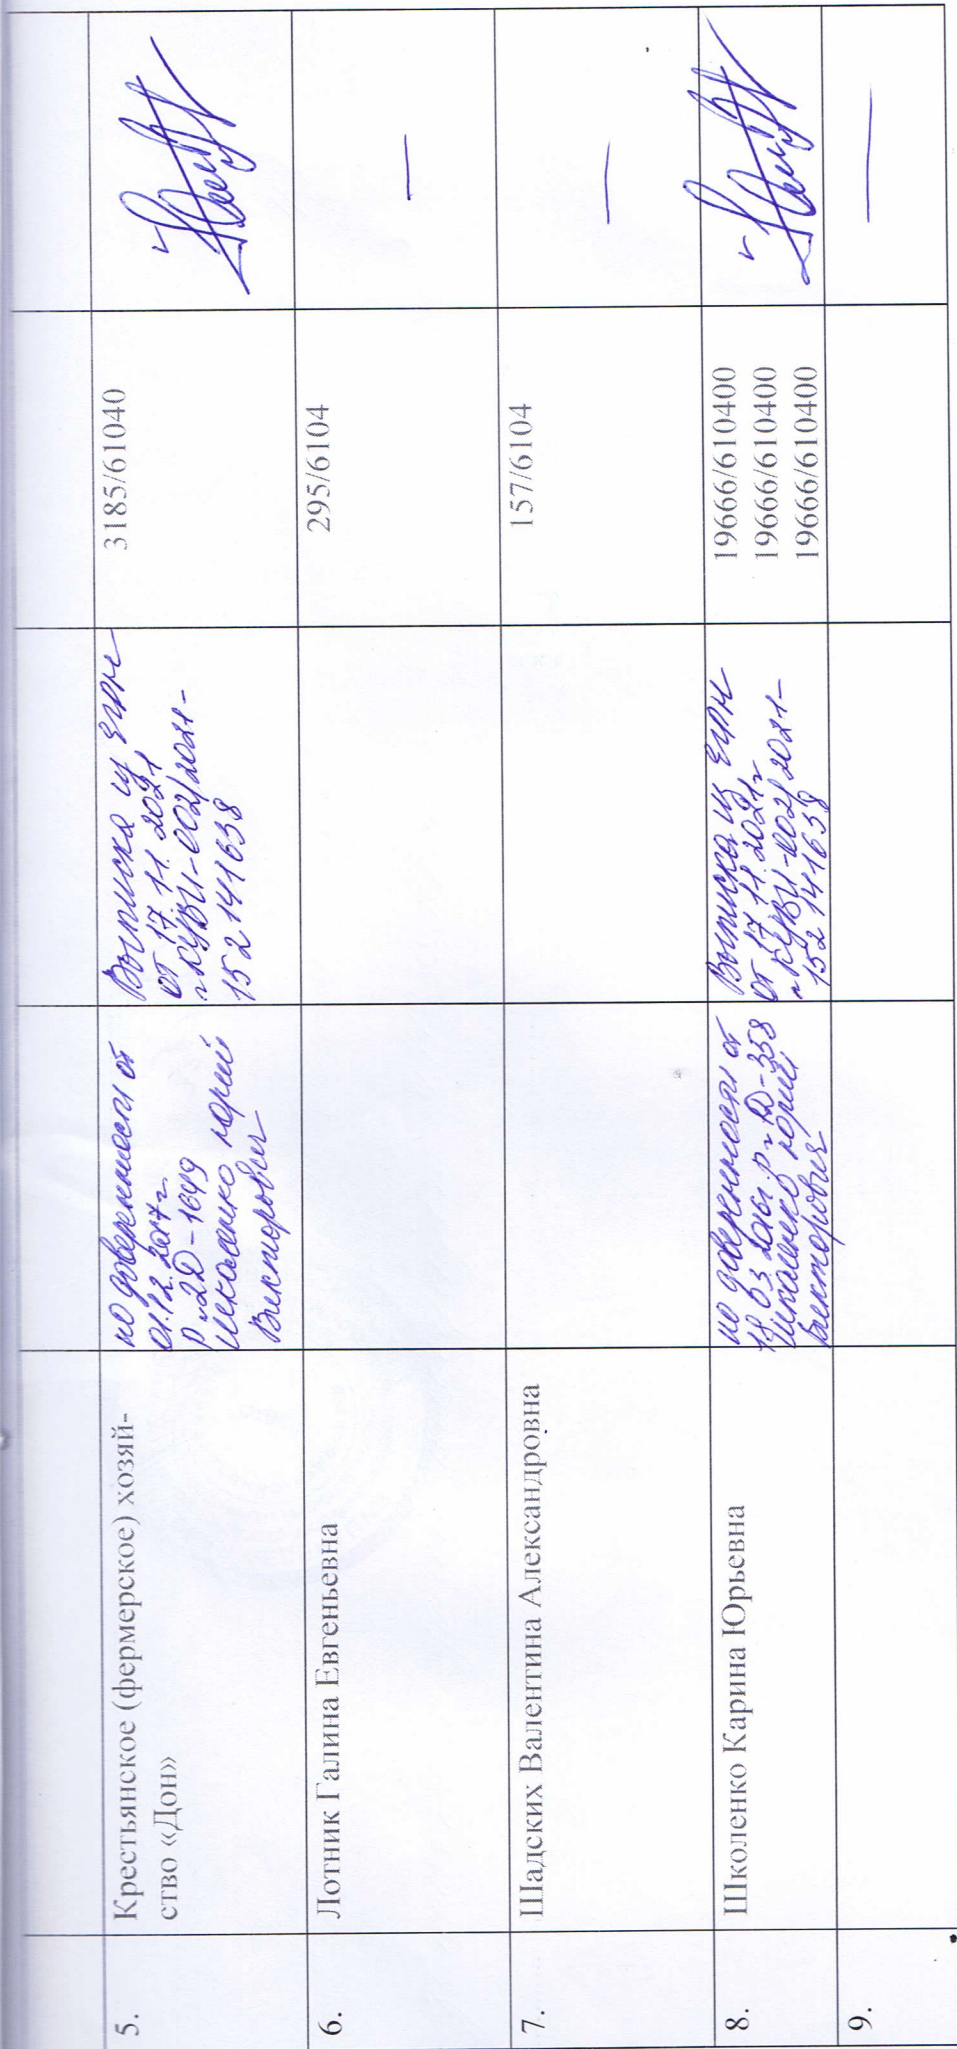 5.
Крестьянское (фермерское) хозяй-
ство «Дон»
по доверенности от
01.12.2017г.
2D-1649
Школенко Юрий
Викторович
Выписка из ЕГРН
от 17.11.2021
КУВИ-002/2021-
152141638
3185/61040
6.
Лотник Галина Евгеньевна
295/6104
—
7.
Шадских Валентина Александровна
157/6104
—
8.
Школенко Карина Юрьевна
по доверенности от
18.03.2016г.
Школенко Юрий
Викторович
Выписка из ЕГРН
от 17.11.2021г
КУВИ-002/2021-
152141638
19666/610400
19666/610400
19666/610400
9.
—